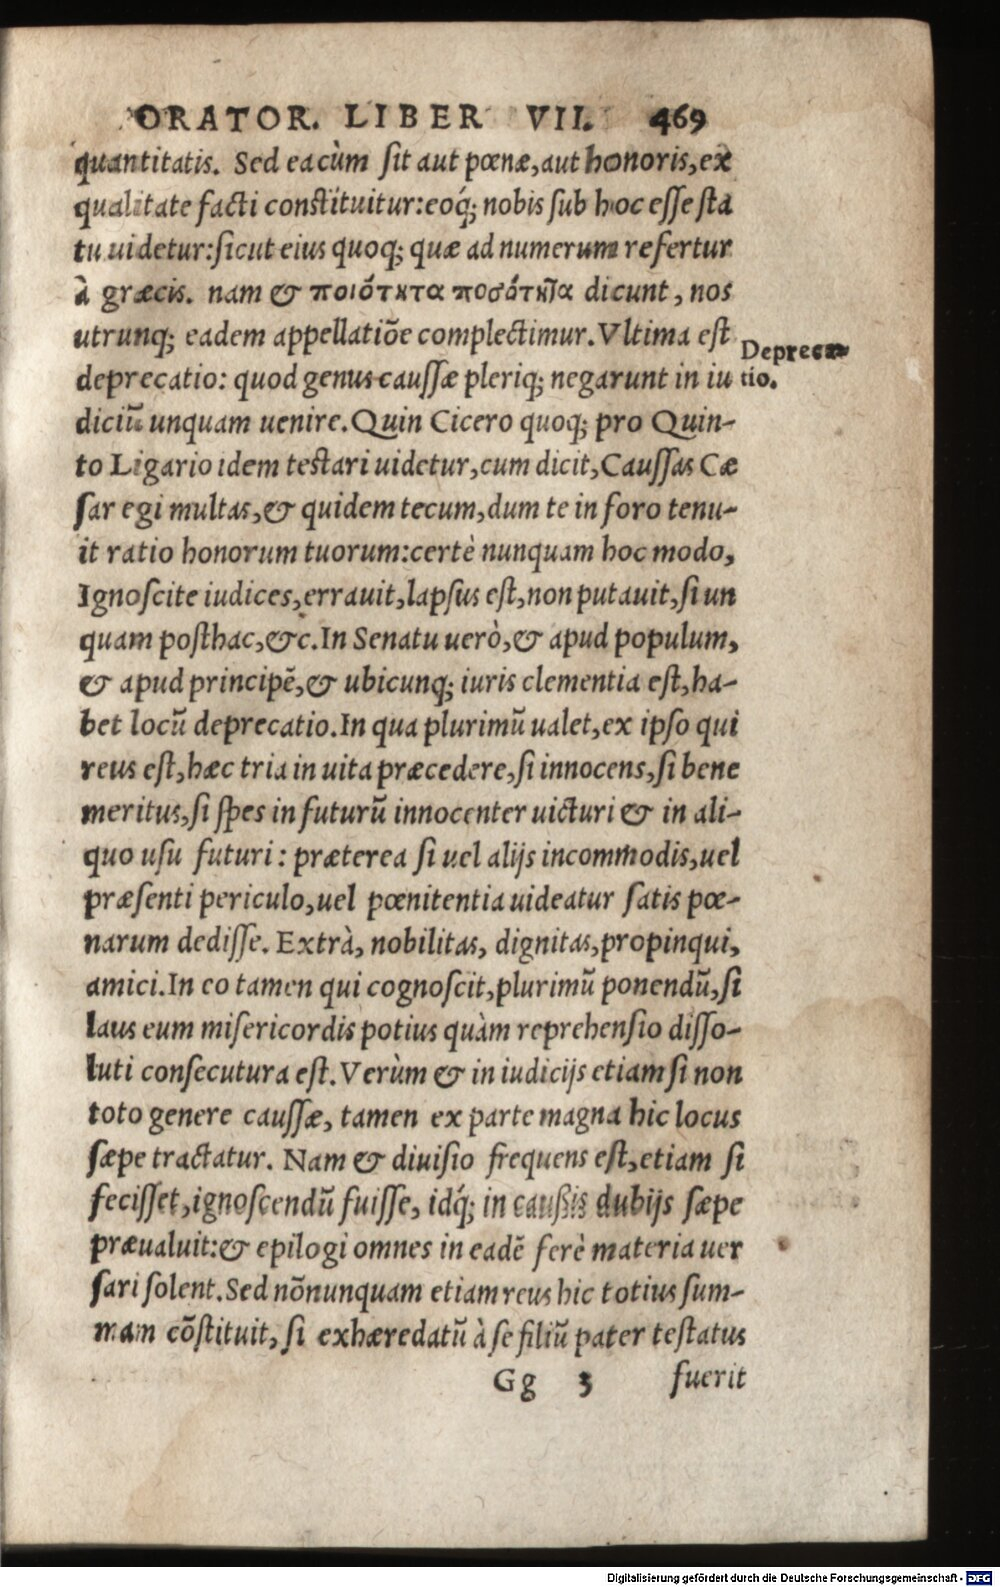 ORATOR. LIBER VII. 469
quantitatis. Sed ea cùm sit aut pœnæ, aut honoris, ex
qualitate facti constituitur: eoq́; nobis sub hoc esse sta
tu uidetur: sicut eius quoq; quæ ad numerum refertur
à græcis. nam & ποιότητα ποσότητα dicunt, nos
utrunq; eadem appellatiõe complectimur. Vltima est
Depreca-
tio.
deprecatio: quod genus caussæ pleriq; negarunt in iu
diciũ unquam uenire. Quin Cicero quoq; pro Quin-
to Ligario idem testari uidetur, cum dicit, Caussas Cæ
sar egi multas, & quidem tecum, dum te in foro tenu-
it ratio honorum tuorum: certè nunquam hoc modo,
Ignoscite iudices, errauit, lapsus est, non putauit, si un
quam posthac, &c. In Senatu uerò, & apud populum,
& apud principẽ, & ubicunq; iuris clementia est, ha-
bet locũ deprecatio. In qua plurimũ ualet, ex ipso qui
reus est, hæc tria in uita præcedere, si innocens, si bene
meritus, si spes in futurũ innocenter uicturi & in ali-
quo usu futuri: præterea si uel alijs incommodis, uel
præsenti periculo, uel pœnitentia uideatur satis pœ-
narum dedisse. Extrà, nobilitas, dignitas, propinqui,
amici. In eo tamen qui cognoscit, plurimũ ponendũ, si
laus eum misericordis potius quàm reprehensio disso-
luti consecutura est. Verùm & in iudicijs etiam si non
toto genere caussæ, tamen ex parte magna hic locus
sæpe tractatur. Nam & diuisio frequens est, etiam si
fecisset, ignoscendũ fuisse, idq́; in caussis dubijs sæpe
præualuit: & epilogi omnes in eadẽ ferè materia uer
sari solent. Sed nõnunquam etiam reus hic totius sum-
mam cõstituit, si exhæredatũ à se filiũ pater testatus
Gg 3 fuerit
Digitalisierung gefördert durch die Deutsche Forschungsgemeinschaft - DFG